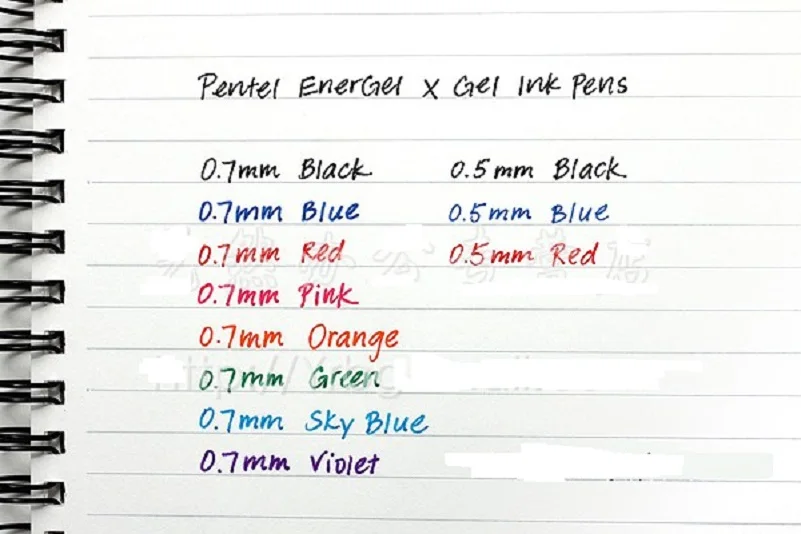 Pentel EnerGel X Gel Ink Pens
0.7mm Black 0.5mm Black
0.7mm Blue 0.5mm Blue
0.7mm Red 0.5mm Red
0.7mm Pink
0.7mm Orange
0.7mm Green
0.7mm Sky Blue
0.7mm Violet